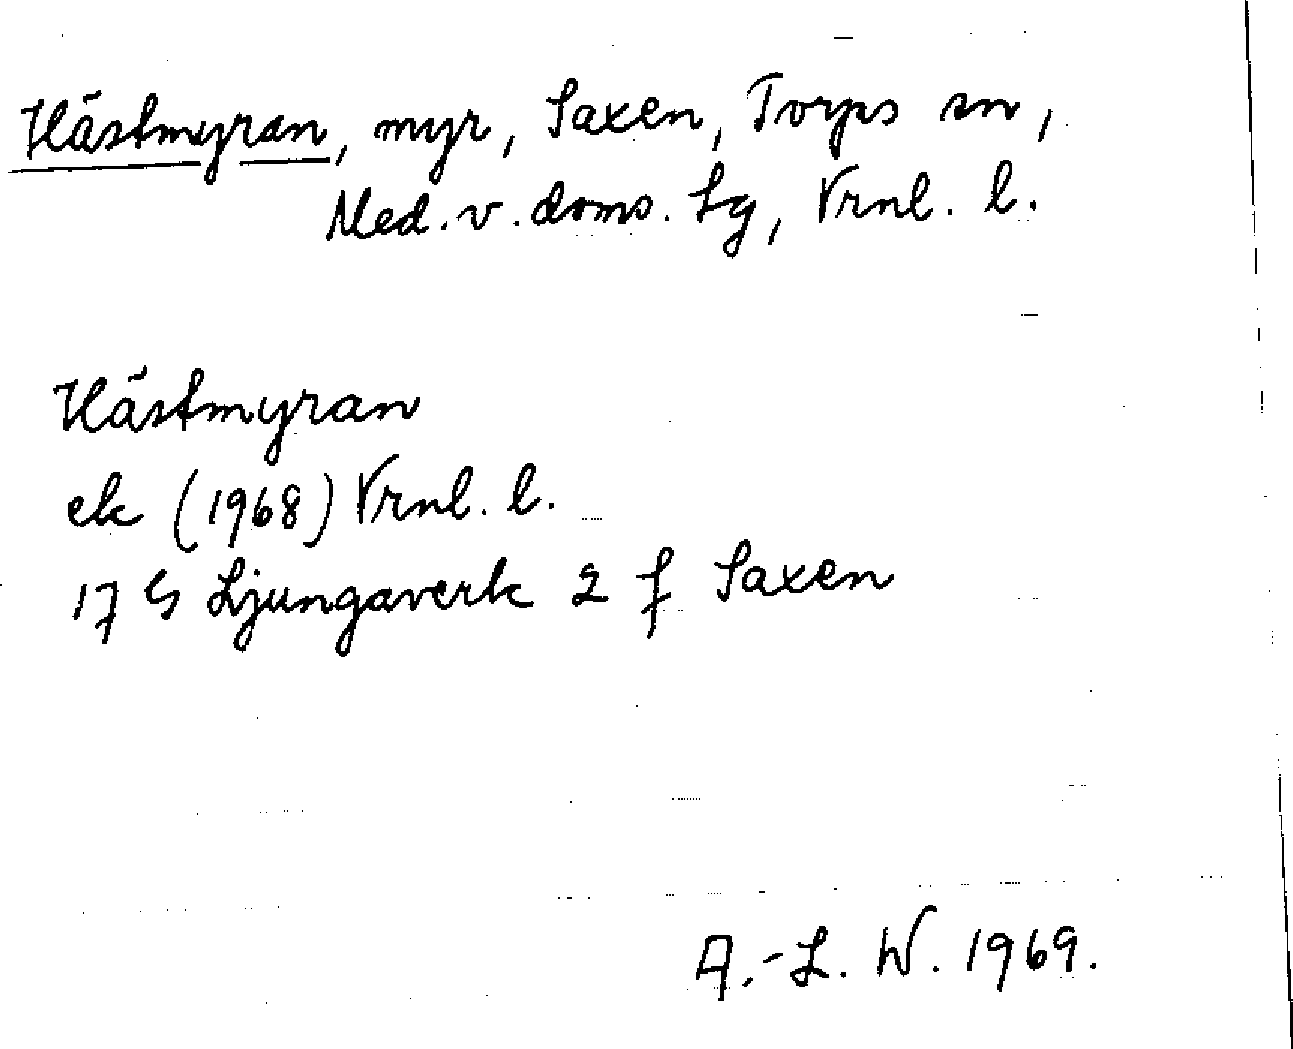 Hästmyran, myr, Saxen, Torps sn,
Med. v. doms. lg, Vrnl. l.
Hästmyran
ek (1968) Vrnl. l.
17 G Ljungaverk 2 f Saxen
A.-L. W. 1969.